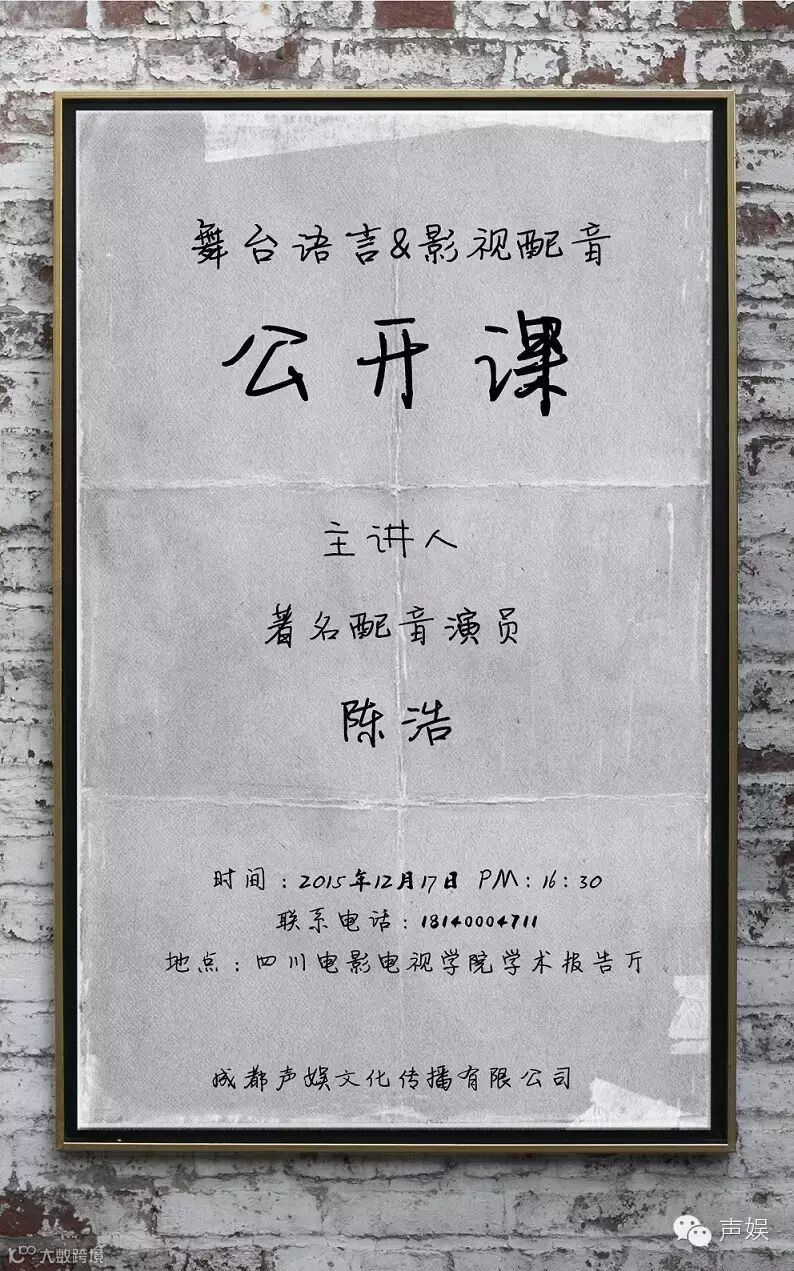 舞台语言&影视配音
公开课
主讲人
著名配音演员
陈浩
时间:2015年12月17日 PM:16:30
联系电话:18140004711
地点:四川电影电视学院学术报告厅
成都声娱文化传播有限公司
声娱
大数跨境